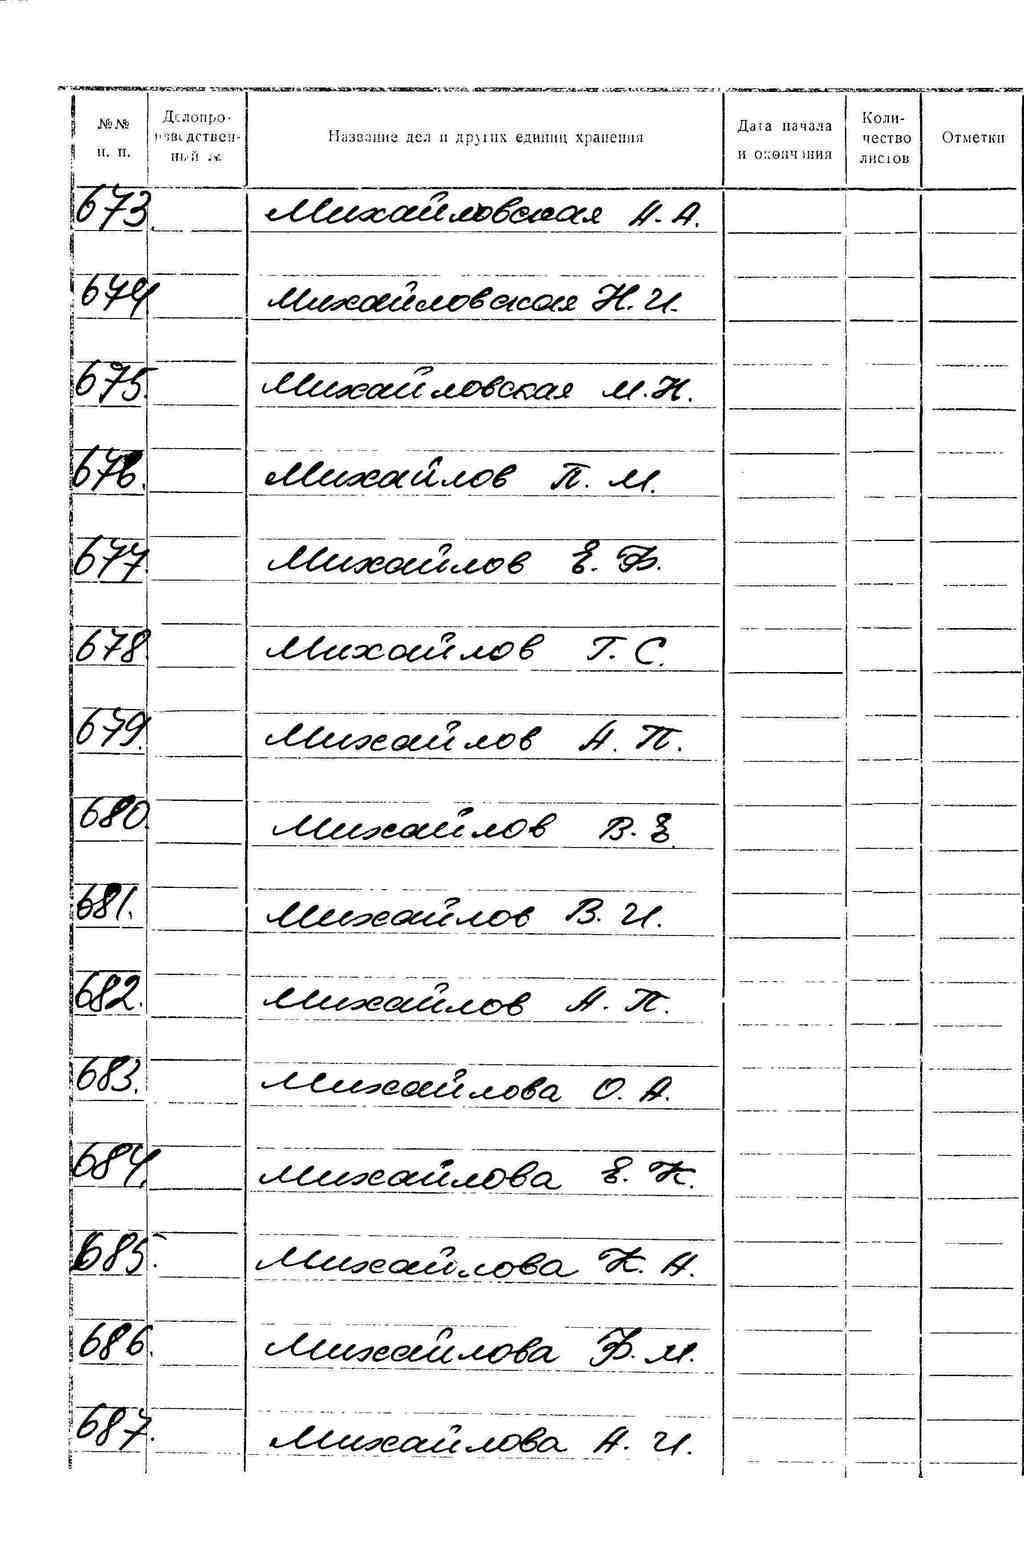 №№ п. п.
Делопроизводственный №
Название дел и других единиц хранения
Дата начала и окончания
Количество листов
Отметки
673. Михайловская А. А.
674 Михайловская Н. И.
675. Михайловская М. Н.
676. Михайлов П. М.
677. Михайлов Е. Ф.
678. Михайлов Г. С.
679. Михайлов А. П.
680. Михайлов В. Е.
681. Михайлов В. И.
682. Михайлов А. П.
683. Михайлова О. А.
684. Михайлова Е. К.
685. Михайлова К. А.
686. Михайлова Ф. М.
687. Михайлова А. И.